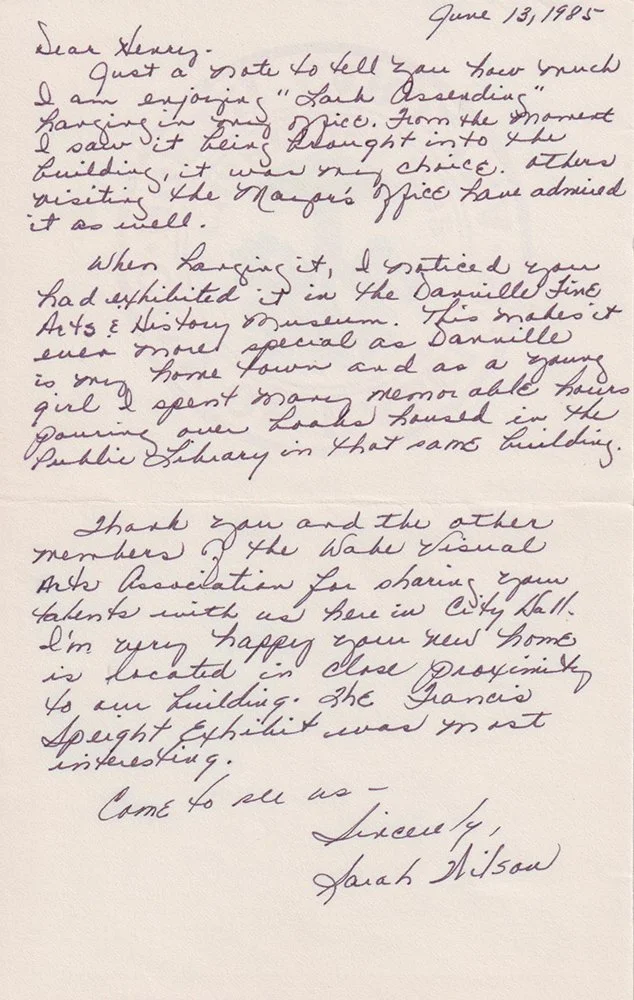 June 13, 1985
Dear Henry,
Just a note to tell you how much
I am enjoying "Lark Assending"
hanging in my office. From the moment
I saw it being brought into the
building, it was my choice. Others
visiting the Mayor's office have admired
it as well.
When hanging it, I noticed you
had exhibited it in the Danville Fine
Arts & History Museum. This makes it
even more special as Danville
is my home town and as a young
girl I spent many memorable hours
pouring over books housed in the
Public Library in that same building.
Thank you and the other
members of the Wake Visual
Arts Association for sharing your
talents with us here in City Hall.
I'm very happy your new home
is located in close proximity
to our building. The Francis
Speight Exhibit was most
interesting.
Come to see us -
Sincerely,
Sarah Wilson